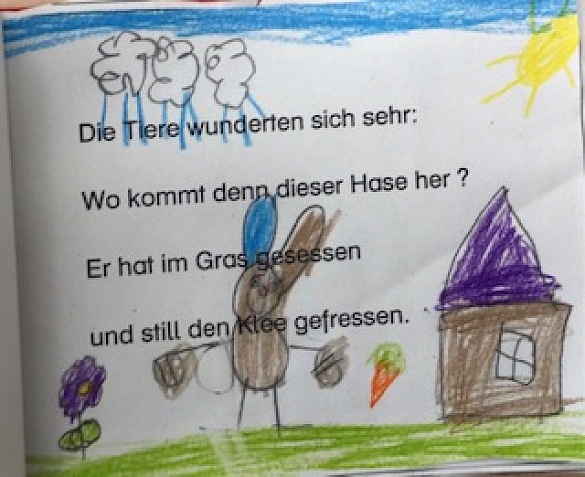 Die Tiere wunderten sich sehr:
Wo kommt denn dieser Hase her ?
Er hat im Gras gesessen
und still den Klee gefressen.